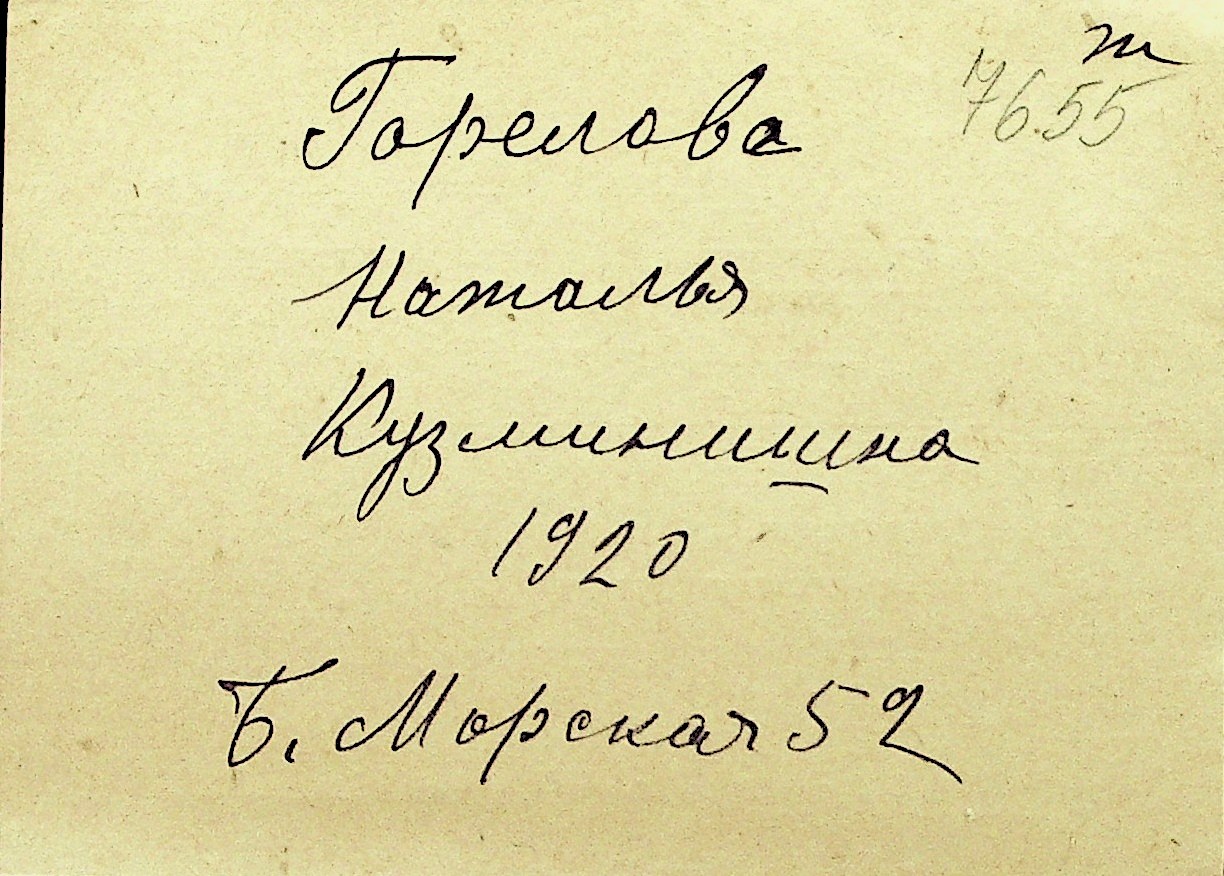 т
7655
Горелова
Наталья
Кузминишна
1920
Б. Морская 52